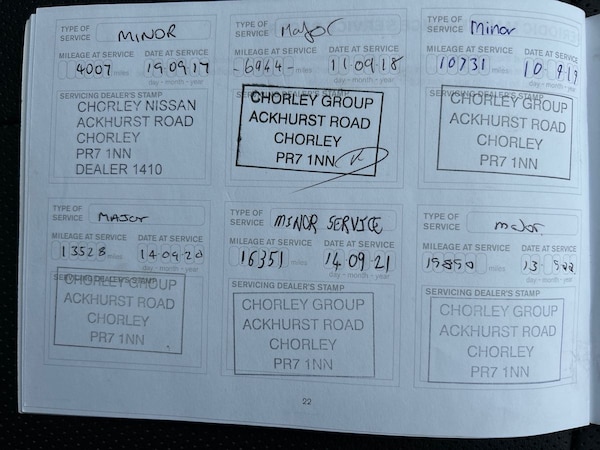 TYPE OF SERVICE MINOR
MILEAGE AT SERVICE DATE AT SERVICE
4007 miles 19 09 17
day • month • year
SERVICING DEALER'S STAMP
CHORLEY NISSAN
ACKHURST ROAD
CHORLEY
PR7 1NN
DEALER 1410
TYPE OF SERVICE Major
MILEAGE AT SERVICE DATE AT SERVICE
-6944- 11 09 18
CHORLEY GROUP
ACKHURST ROAD
CHORLEY
PR7 1NN
TYPE OF SERVICE Minor
MILEAGE AT SERVICE DATE AT SERVICE
10731 miles 10 9 19
day • month • year
SERVICING DEALER'S STAMP
CHORLEY GROUP
ACKHURST ROAD
CHORLEY
PR7 1NN
TYPE OF SERVICE MAJOR
MILEAGE AT SERVICE DATE AT SERVICE
13528 miles 14 09 20
day • month • year
SERVICING DEALER'S STAMP
CHORLEY GROUP
ACKHURST ROAD
CHORLEY
PR7 1NN
TYPE OF SERVICE MINOR SERVICE
MILEAGE AT SERVICE DATE AT SERVICE
16351 miles 14 09 21
day • month • year
SERVICING DEALER'S STAMP
CHORLEY GROUP
ACKHURST ROAD
CHORLEY
PR7 1NN
TYPE OF SERVICE major
MILEAGE AT SERVICE DATE AT SERVICE
miles 13
day • month • year
SERVICING DEALER'S STAMP
CHORLEY GROUP
ACKHURST ROAD
CHORLEY
PR7 1NN
22